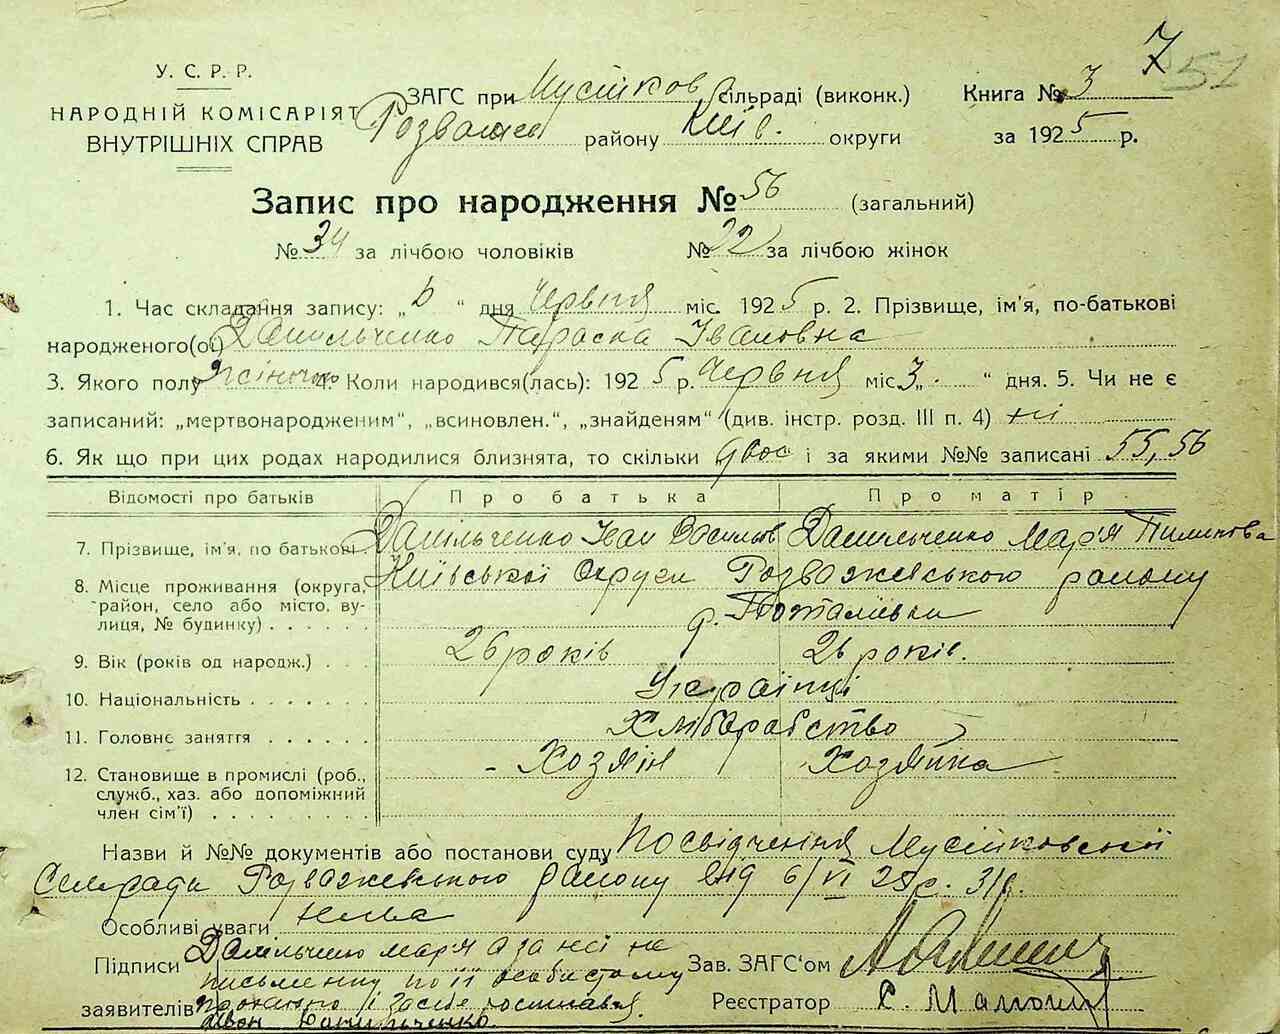 7 51
У. С. Р. Р.
НАРОДНІЙ КОМІСАРІЯТ
ВНУТРІШНІХ СПРАВ
ЗАГС при Мусійков сільраді (виконк.) Книга № 3
Розважев району Київ. округи за 1925 р.
Запис про народження № 56 (загальний)
№ 34 за лічбою чоловіків № 22 за лічбою жінок
1. Час складання запису: „6“ дня Червня міс. 1925 р. 2. Прізвище, ім'я, по-батькові
народженого(ої) Данильченко Параска Івановна
3. Якого полу жіночого 4. Коли народився(лась): 1925 р. Червня міс. „3“ дня. 5. Чи не є
записаний: „мертвонародженим“, „всиновлен.“, „знайденям“ (див. інстр. розд. III п. 4) ні
6. Як що при цих родах народилися близнята, то скільки двоє і за якими №№ записані 55, 56
Відомості про батьків Про батька Про матір
7. Прізвище, ім'я, по батькові Данільченко Іван Васильов Данильченко Мар'я Пилипова
8. Місце проживання (округа, район, село або місто, вулиця, № будинку) Київської Округи Розважевського району
9. Вік (років од народж.) 26 років 26 років.
10. Національність Українці
11. Головне заняття Хліборобство
12. Становище в промислі (роб., служб., хаз. або допоміжний член сім'ї) - Хозяін Хозяйка
Назви й №№ документів або постанови суду Посвідчення Мусійковської
Сельради Розважевського району від 6/VI 25р. 31
Особливі уваги нема
Підписи Данільченко мар'я а за неї не
письменну по її особистому
заявителів проханню і за себе росписався
Іван Данильченко.
Зав. ЗАГС'ом
Реєстратор С.